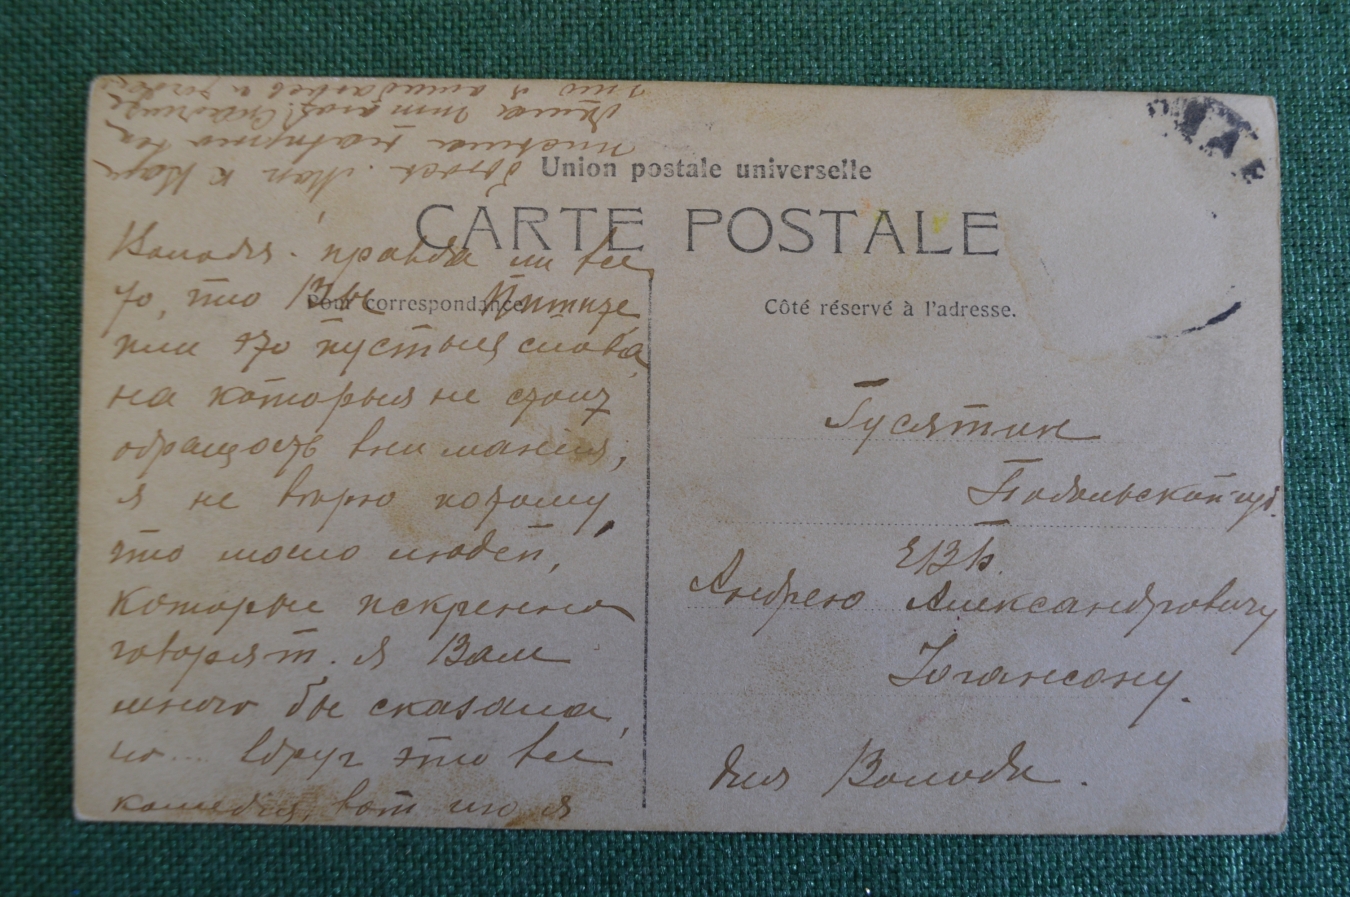 Union postale universelle
CARTE POSTALE
Pour correspondance
Côté réservé à l'adresse.
Володя. правда ли все
то, что Вы
или это пустыя слова,
на которыя не стоит
обращать внимания,
я не верю потому
что мало людей,
которые искренно
говорят. я Вам
много бы сказала,
но... вдруг это все
комедия, вот что я
Гусятин
Подольской губ.
ЕВБ.
Андрею Александровичу
Іогансону.
для Володи.